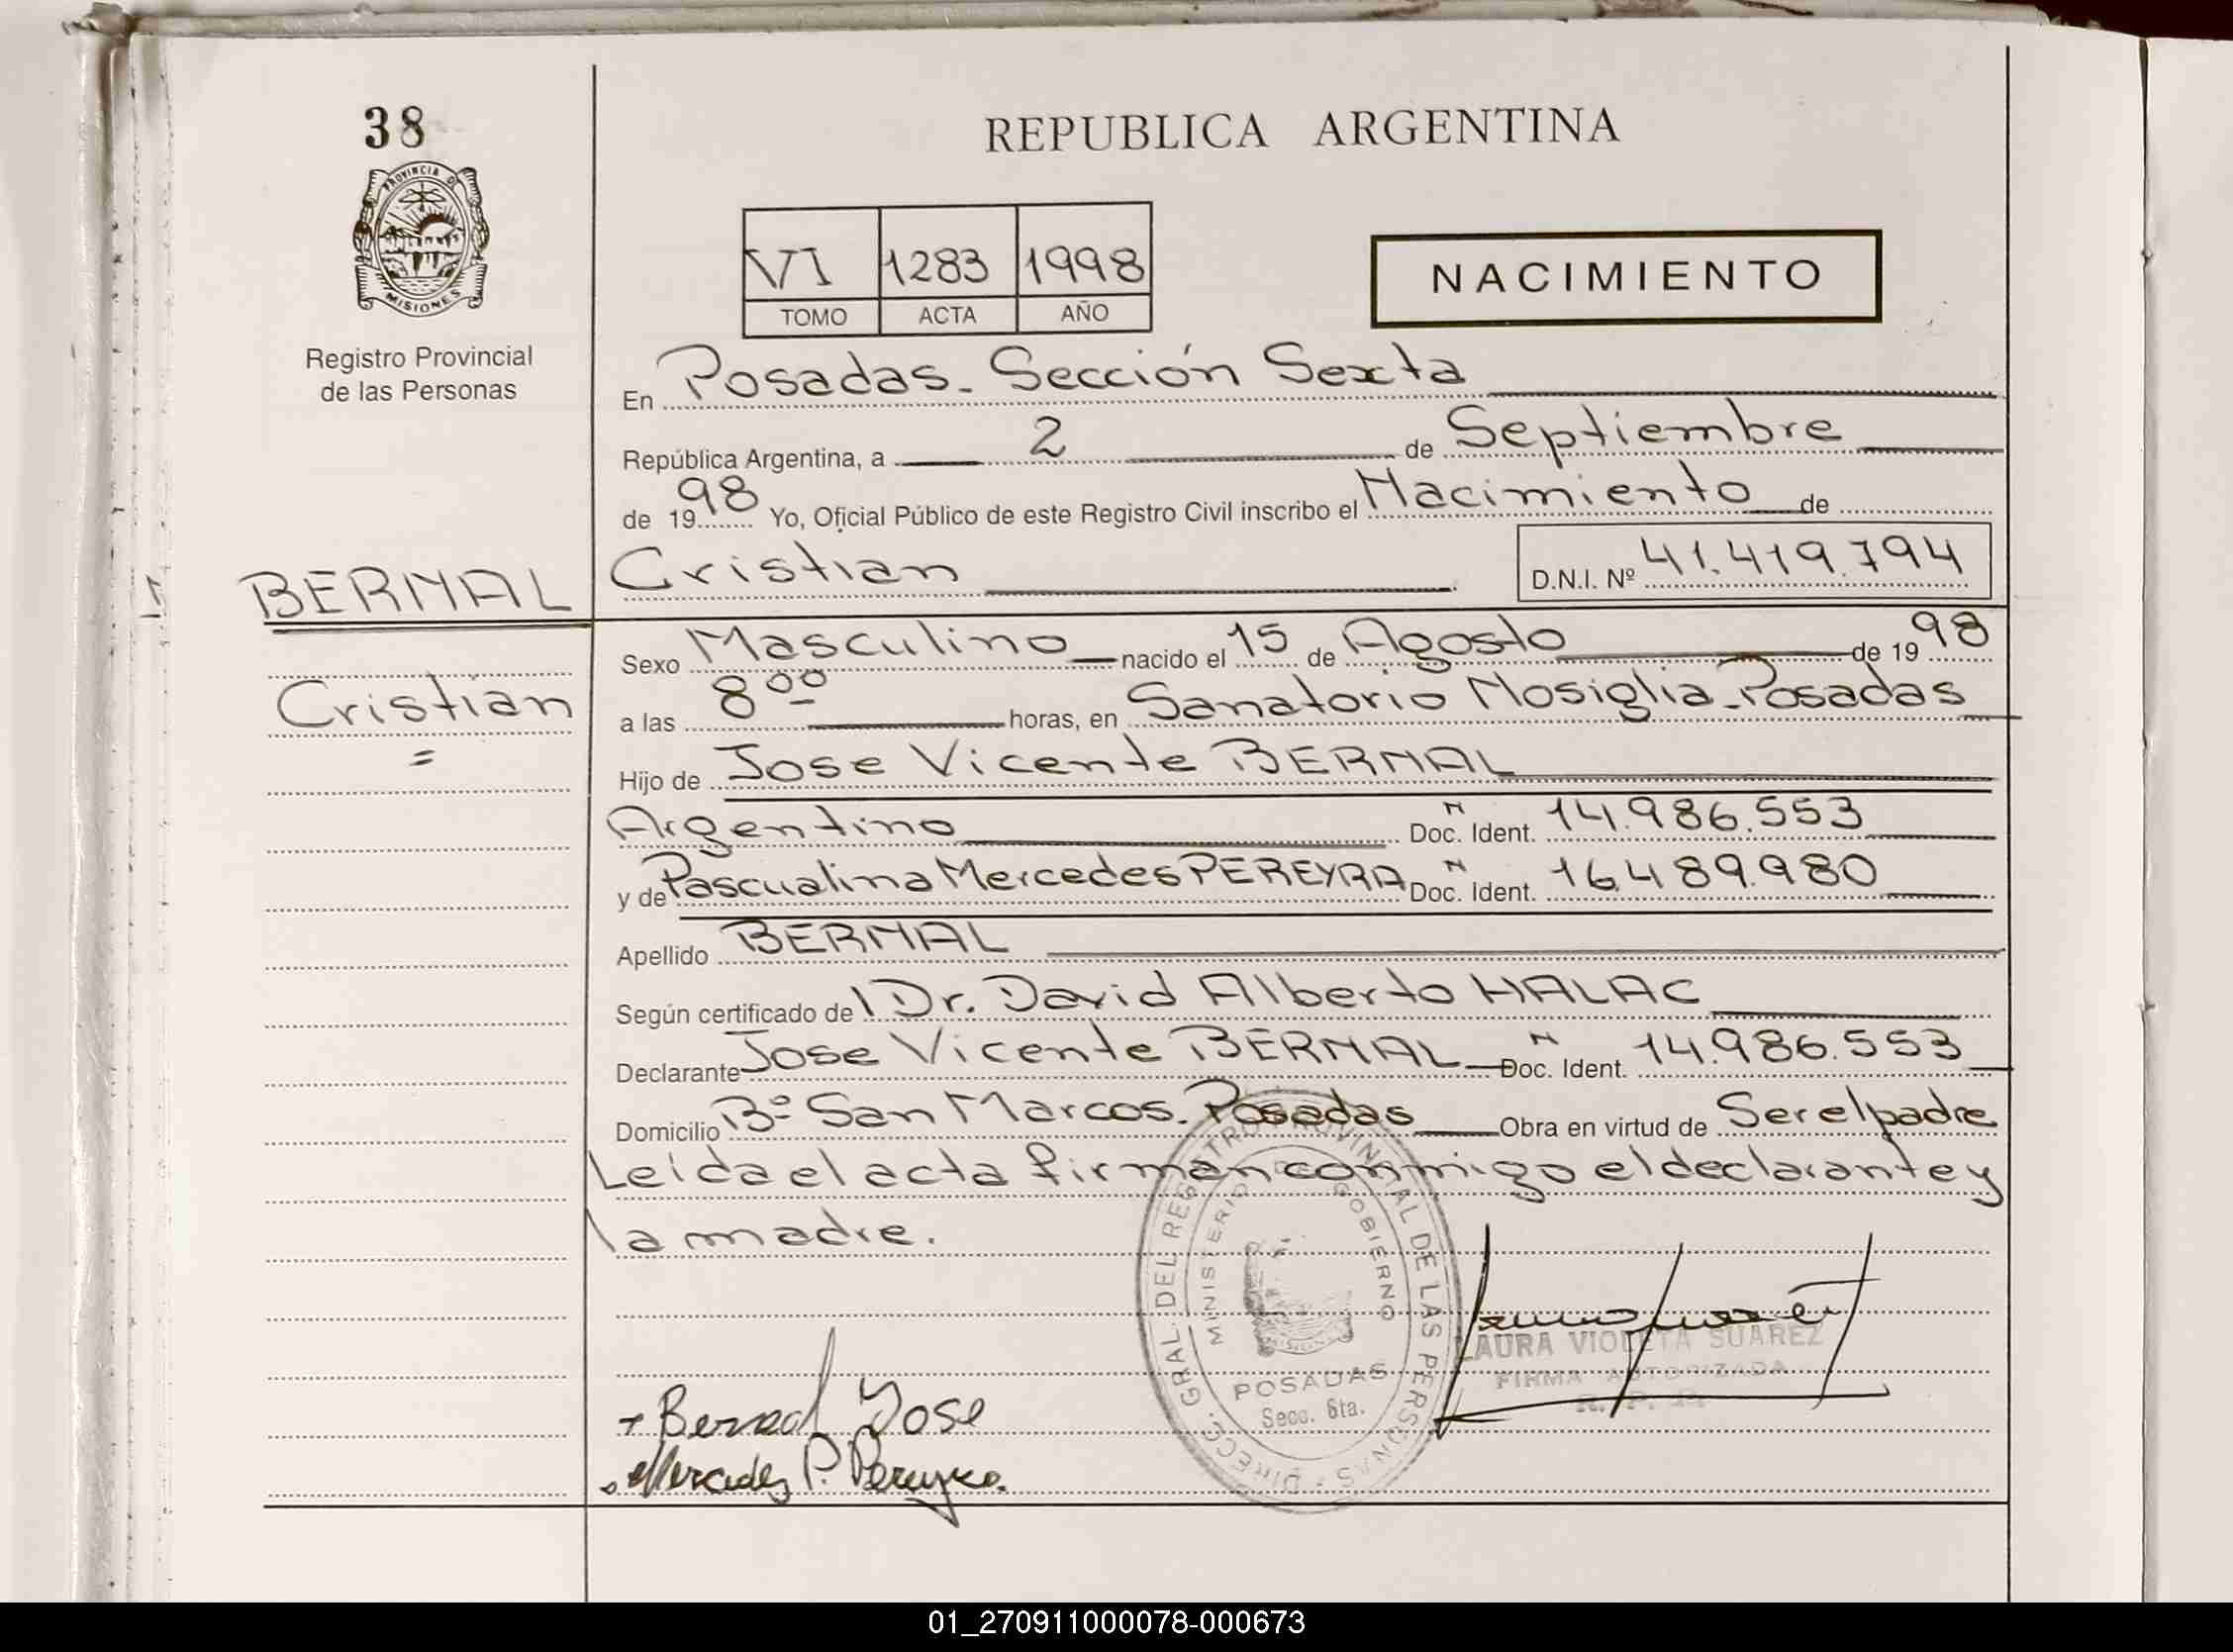 38
PROVINCIA DE
MISIONES
Registro Provincial
de las Personas
REPUBLICA ARGENTINA
VI 1283 1998
TOMO ACTA AÑO
NACIMIENTO
En Posadas - Sección Sexta
República Argentina, a 2 de Septiembre
de 1998 Yo, Oficial Público de este Registro Civil inscribo el Nacimiento de
BERNAL Cristian D.N.I. Nº 41.419.794
Sexo Masculino nacido el 15 de Agosto de 1998
Cristian
a las 8 00 horas, en Sanatorio Nosiglia - Posadas
Hijo de Jose Vicente BERNAL
Argentino Doc. N Ident. 14.986.553
y de Pascualina Mercedes PEREYRA Doc. N Ident. 16.489.980
Apellido BERNAL
Según certificado de l Dr. David Alberto HALAC
Declarante Jose Vicente BERNAL Doc. N Ident. 14.986.553
Domicilio Bº San Marcos. Posadas Obra en virtud de Ser el padre
Leída el acta firman conmigo el declarante y
la madre.
DIRECC. GRAL. DEL REGISTRO PROVINCIAL DE LAS PERSONAS
MINISTERIO GOBIERNO
POSADAS
Secc. 6ta.
LAURA VIOLETA SUAREZ
FIRMA AUTORIZADA
R. P. P.
Bernal Jose
Mercedes P. Pereyra.
01_270911000078-000673